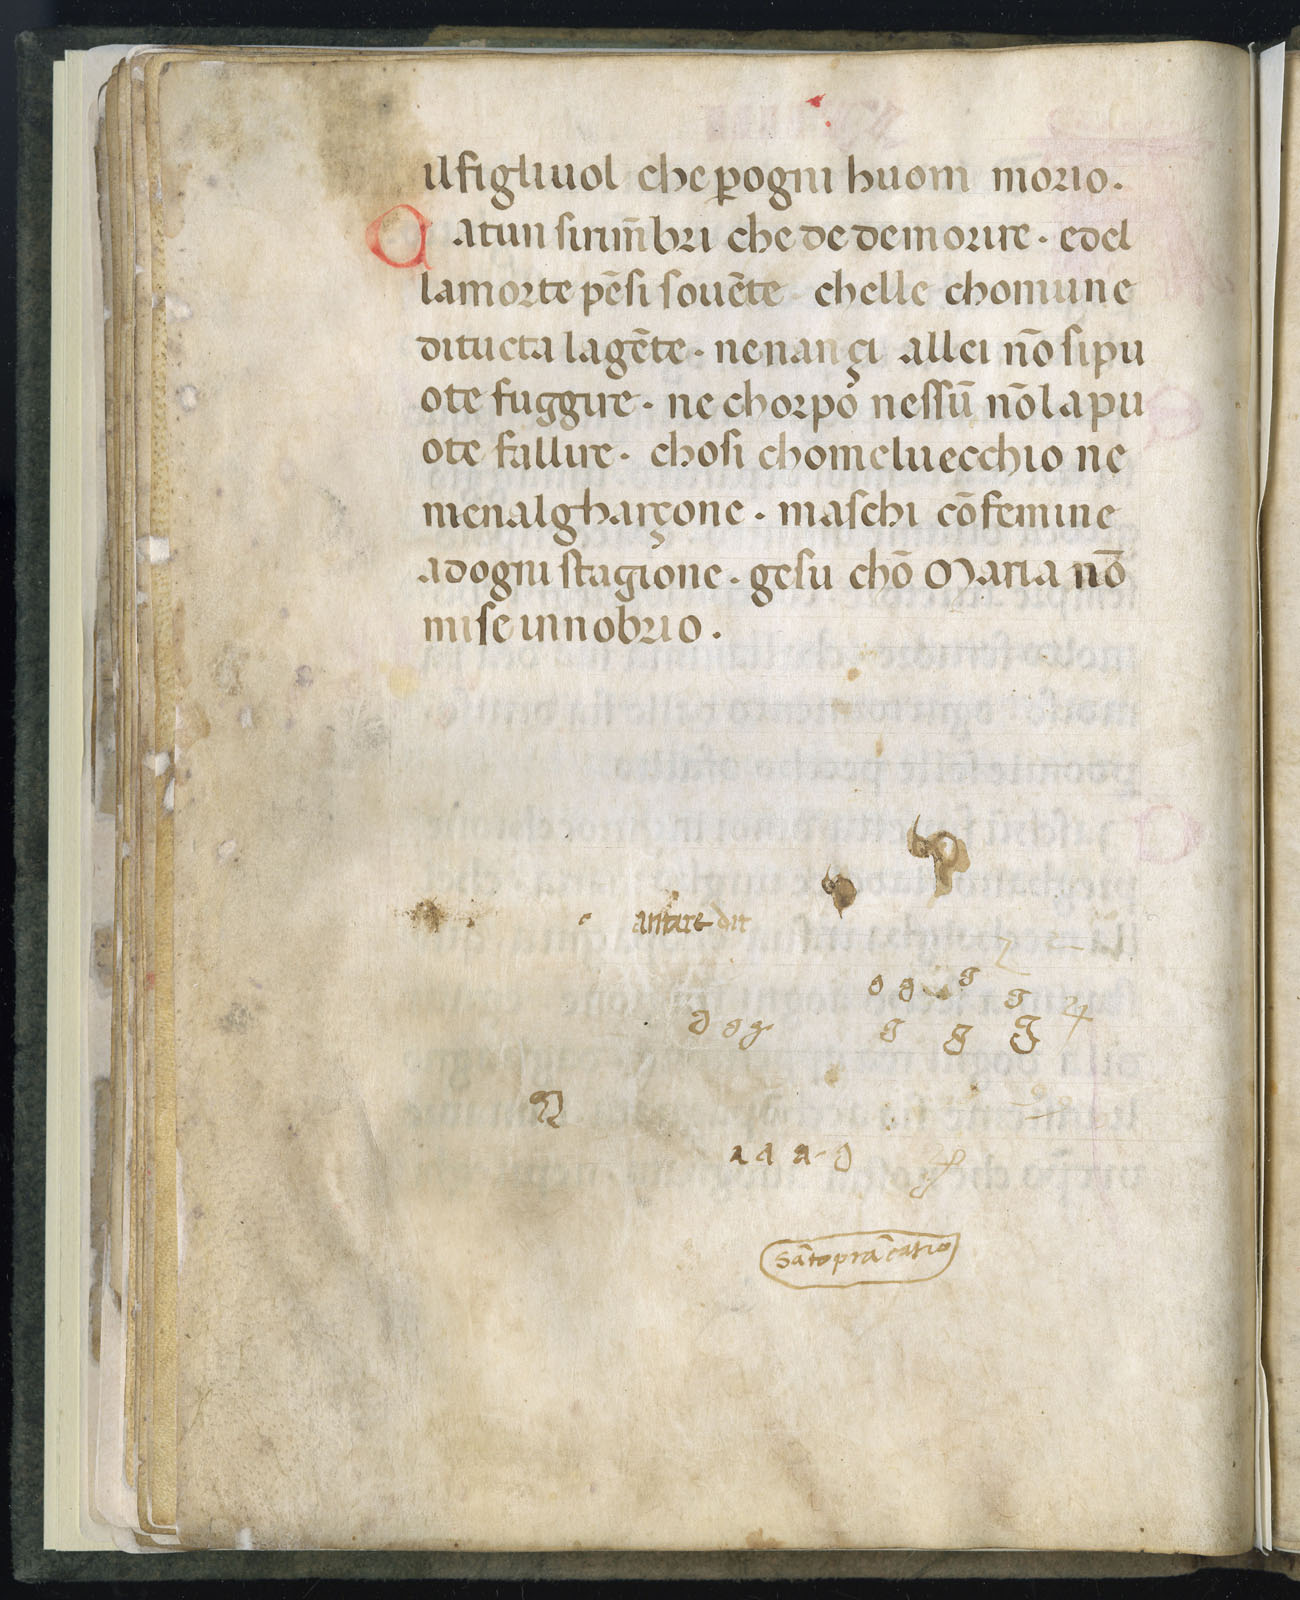 il figliuol che ꝑogni huom morio.
Catun si rim̄bri che de de morire · e del
la morte pēsi souēte · chelle chomune
di tucta la gēte · ne nançi allei nō si pu
ote fuggire · ne chorpo nessū nō la pu
ote fallire · chosi chomel uecchio ne
mena l gharçone · maschi cō femine
ad ogni stagione · gesu chō Maria nō
mise in nobrio.
antare dit
g g g g
g g g g g g
a a a